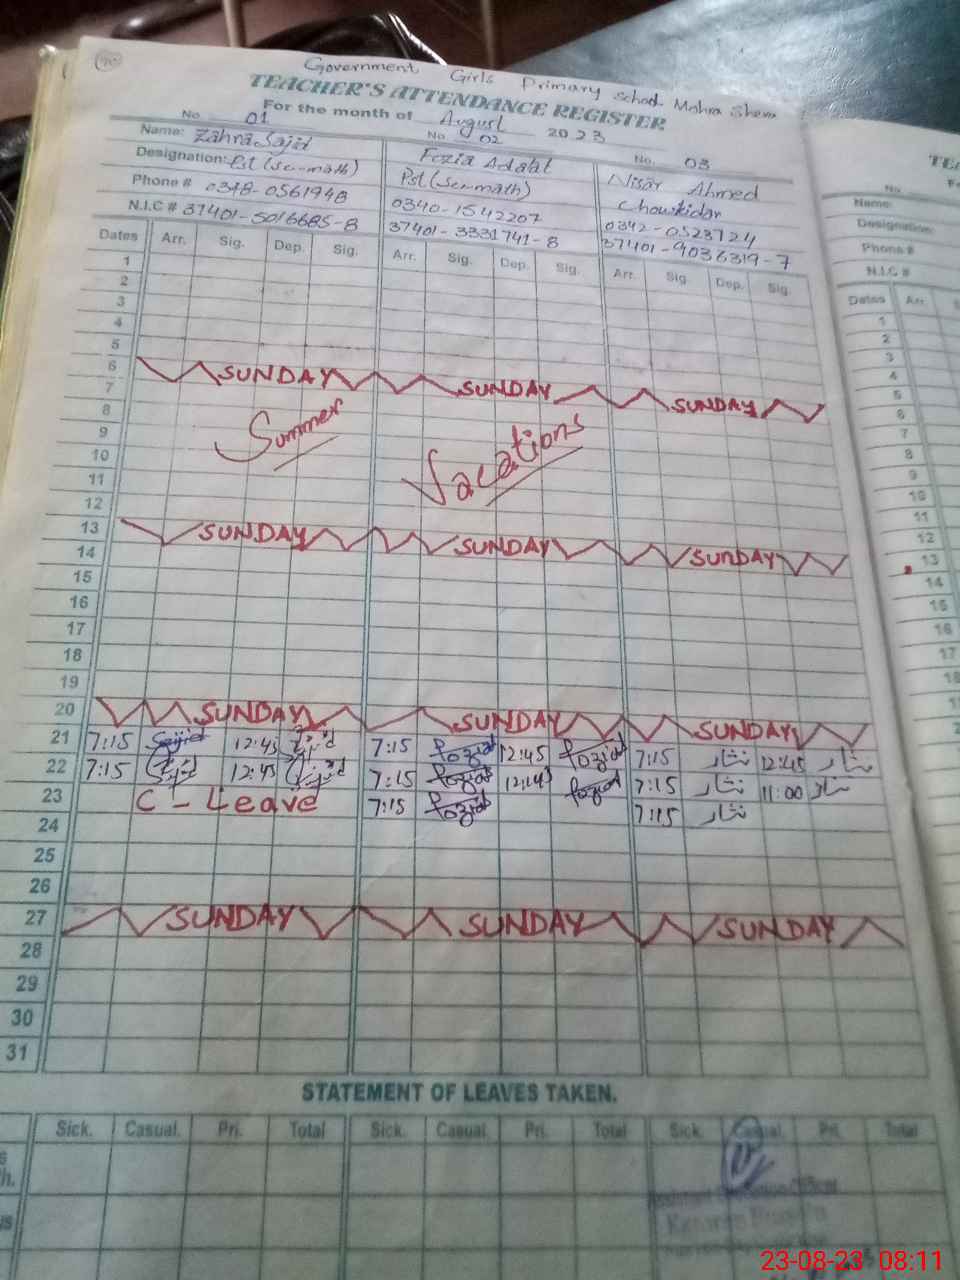 Government Girls Primary School Mohra Shera
TEACHER'S ATTENDANCE REGISTER
For the month of August 2023
No 01 No 02 No. 03
Name: Zahra Sajid Fozia Adalat Nisar Ahmed
Designation: Pst (Sc-math) Pst (Sc-math) Chowkidar
Phone # 0348-0561948 0340-1542207 0342-0523724
N.I.C # 37401-5016685-8 37401-3331741-8 37401-9036319-7
Dates Arr. Sig. Dep. Sig. Arr. Sig. Dep. Sig. Arr. Sig. Dep. Sig.
1
2
3
4
5
6 SUNDAY SUNDAY SUNDAY
7
8 Summer
9 Vacations
10
11
12
13 SUNDAY SUNDAY SUNDAY
14
15
16
17
18
19
20 SUNDAY SUNDAY SUNDAY
21 7:15 Sajid 12:45 7:15 Fozia 12:45 Fozia 7:15 نثار 12:45 نثار
22 7:15 12:45 7:15 Fozia 12:45 Fozia 7:15 نثار 11:00 نثار
23 C - Leave 7:15 Fozia 7:15 نثار
24
25
26
27 SUNDAY SUNDAY SUNDAY
28
29
30
31
STATEMENT OF LEAVES TAKEN.
Sick. Casual. Pri. Total Sick. Casual. Pri. Total Sick. Casual. Pri. Total
No
Name:
Designation:
Phone #
N.I.C #
Dates Arr.
1
2
3
4
5
6
7
8
9
10
11
12
13
14
15
16
17
18
19
20
23-08-23 08:11